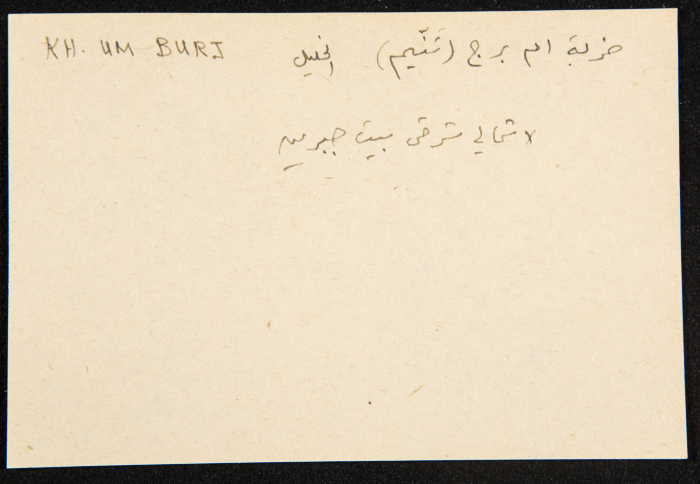 KH. UM BURJ الخليل (تَنّيم) خربة ام برج
لا شمالي شرقي بيت جبرين